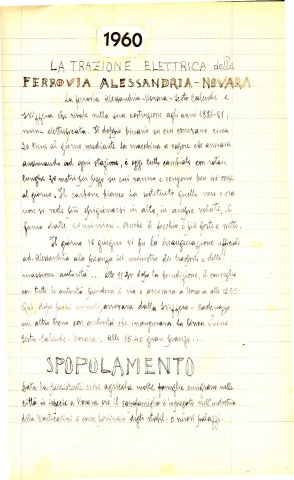 1960
LA TRAZIONE ELETTRICA della
FERROVIA ALESSANDRIA-NOVARA
La ferrovia Alessandria-Novara-Sesto Calende e
Svizzera che risale nella sua costruzione agli anni 1880-81,
venne elettrificata. Il doppio binario su cui correvano circa
20 treni al giorno mediante la macchina a vapore che ansava
ansimando ad ogni stazione, è oggi tutto cambiato con rotaie
lunghe 30 metri per pezzo su cui vanno e vengono ben 40 corse
al giorno. Il carbone bianco ha sostituito quello nero e ora
non si vede più sprigionarsi in alto, in ampie volute, il
fumo dalle ciminiere. Anche il fischio è più forte e netto.
Il giorno 16 giugno vi fu la inaugurazione ufficiale
ad Alessandria alla presenza del ministro dei trasporti e delle
massime autorità ... alle 11.20 dopo la benedizione, il convoglio
con tutte le autorità prendeva il via e arrivava a Novara alle 12.55.
Qui dopo pochi minuti arrivava dalla Svizzera - Cadenazzo
un altro treno con autorità che inaugurava la linea Luino -
Sesto-Calende-Novara. Alle 13.40 gran pranzo...
SPOPOLAMENTO
Data la persistente crisi agricola molte famiglie emigrano nelle
città in specie a Novara ove il capofamiglia è impiegato nell'industria
della Montecatini o come portinaio degli stabili o nuovi palazzi.